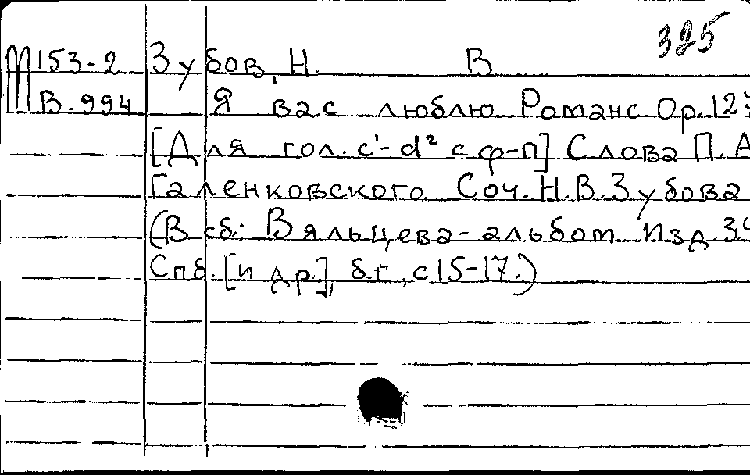 325
М153-2 Зубов, Н. В
В.994 Я вас люблю Романс Ор.127
[Для гол. с'-d² с ф-п] Слова П.А
Галенковского Соч. Н.В. Зубова
(В сб: Вяльцева-альбом Изд.
Спб. [и др.], б.г., с 15-17.)